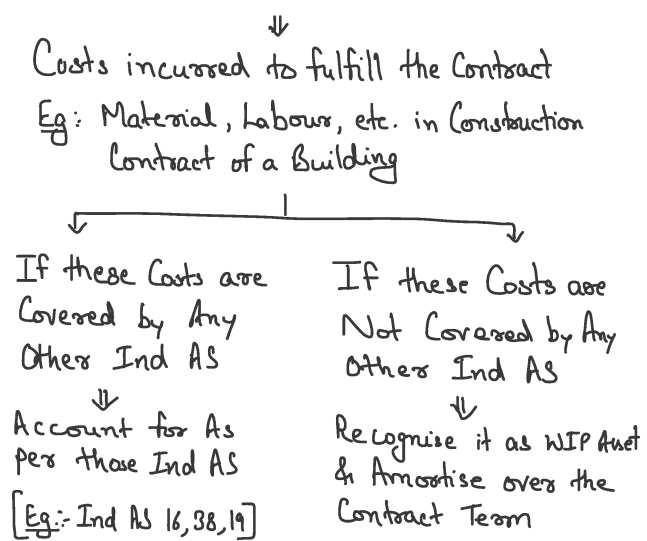 Costs incurred to fulfill the Contract
Eg: Material, Labour, etc. in Construction
Contract of a Building
If these Costs are
Covered by Any
Other Ind AS
Account for As
per those Ind AS
[Eg:- Ind AS 16, 38, 19]
If these Costs are
Not Covered by Any
Other Ind AS
Recognise it as WIP Asset
& Amortise over the
Contract Term